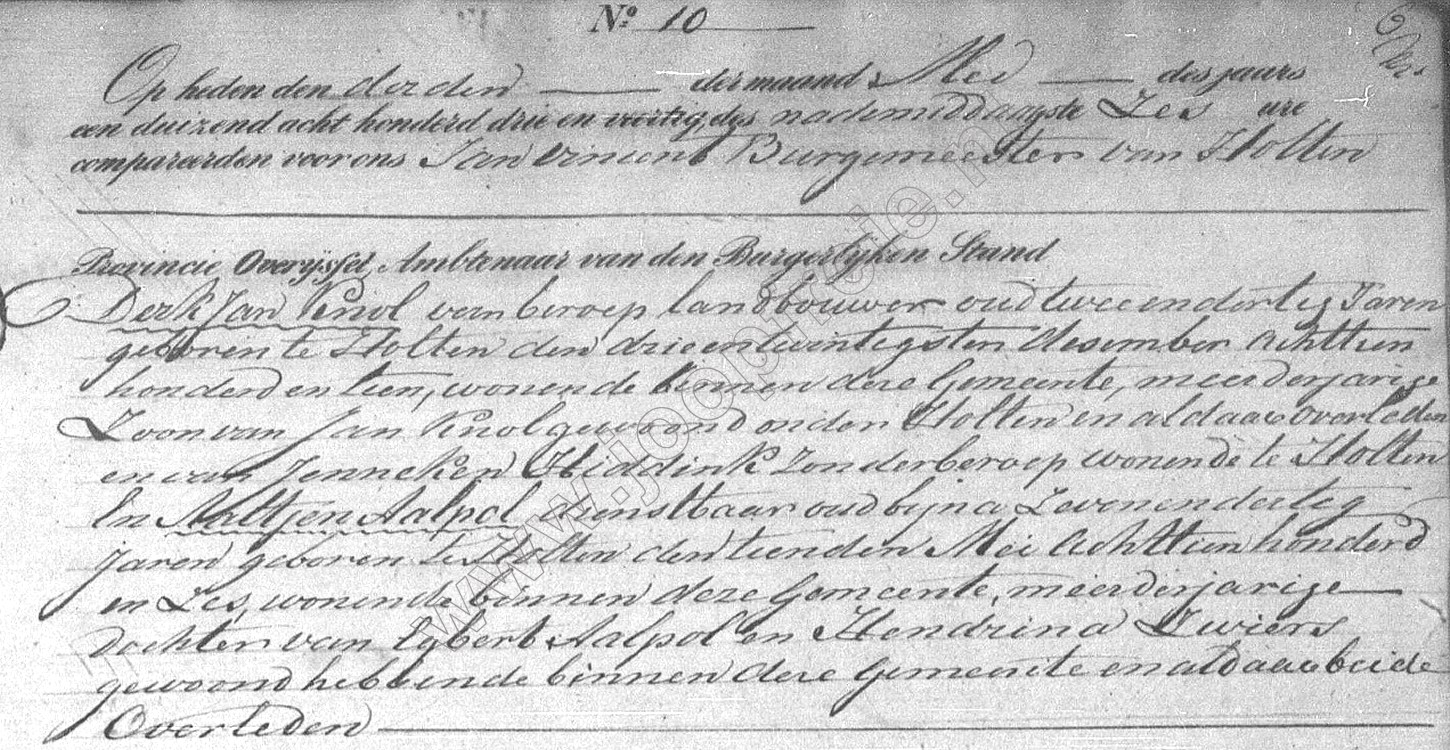 No. 10
Op heden den derden der maand Mei des jaars
een duizend acht honderd drie en veertig, des nademiddagste Zes ure
compareerden voor ons Jan Vincent Burgemeester van Holten
Provincie Overijssel, Ambtenaar van den Burgerlyken Stand
Derk Jan Knol van beroep landbouwer oud twee endertig Jaren
geboren te Holten den drie entwintigsten Desember Achttien
honderd en tien, wonende binnen deze Gemeente, meerderjarige
Zoon van Jan Knol gewoond onder Holten en aldaar overleden
en van Jenneken Hiddink Zonder beroep wonende te Holten
En Aaltjen Aalpol Dienstbaar oud bijna Zevenendertig
jaren geboren te Holten den tienden Mei Achttien honderd
en Zes, wonende binnen deze Gemeente, meerderjarige
dochter van Egbert Aalpol en Hendrina Zwiers
gewoond hebbende binnen deze Gemeente en aldaar beide
Overleden